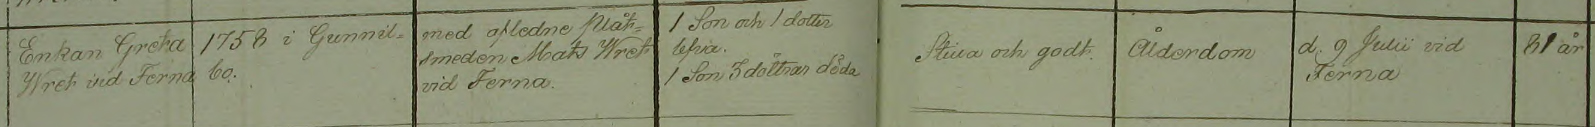 Enkan Greta
Wret vid Ferna
1758 i Gunnil-
bo.
med afledne Plåt-
smeden Mats Wret
vid Ferna.
1 Son och 1 dotter
lefva.
1 Son 3 döttrar döda
Stilla och godt.
Ålderdom
d. 9 Julii vid
Ferna
81 år